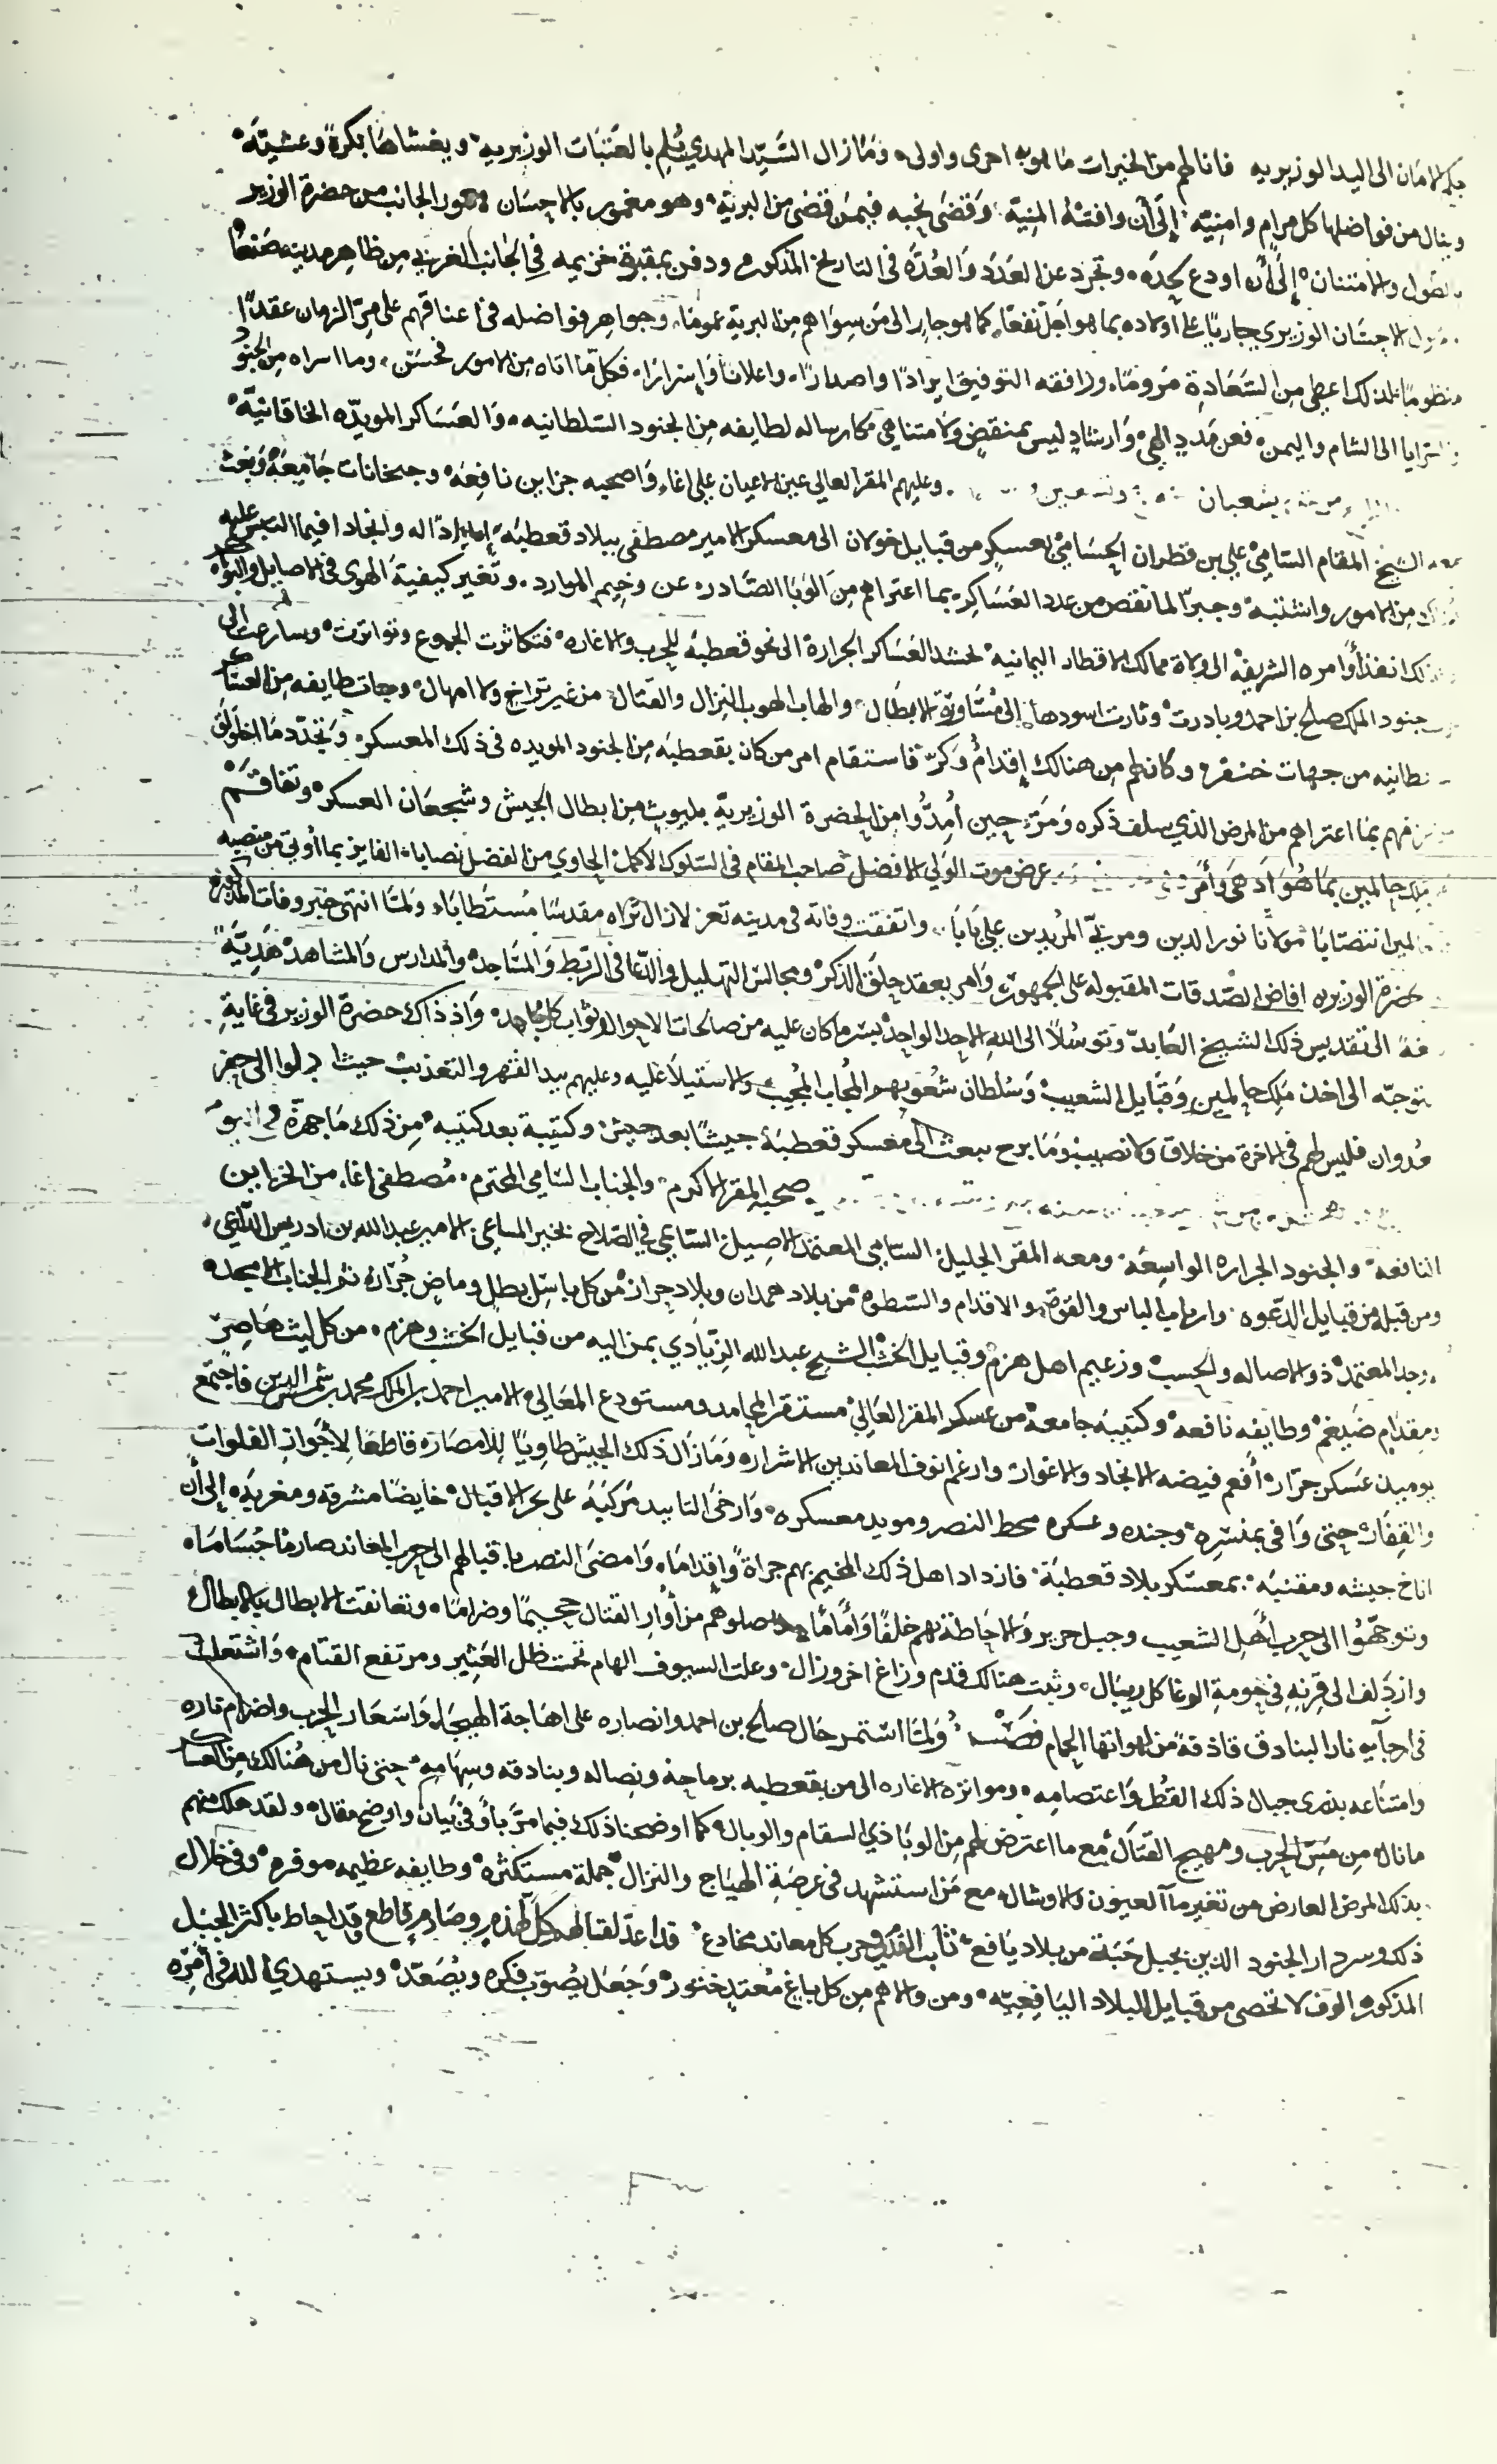 الامان الى اليد الوزيريه فانالهم من الخيرات ما هو به احرى واولى وما زال السيد المهدي يلم بالعتبات الوزيريه ويغشاها بكرة وعشيّة
وينال من فواضلها كل مرام وامنيّه إلى أن وافته المنيّه وقضى نحبه فيمن قضى من البرية وهو مغمور بالاحسان الجانب من حضرة الوزير
والامتنان إلى أن اودع لحده وتجرد عن العَدَد والعُدَّه في التاريخ المذكور ودفن بمقبرة خزيمه في الجانب الغربي من ظاهر مدينه صنعا
الاحسان الوزيري جاريًا على اولاده بما هو اجل نفعًا كما هو جار الى من سواهم من البريه عمومًا وجواهر فواضله في اعناقهم على مرّ الزمان عقدًا
منظومًا لذلك اعطى من السّعادة مرومًا ورافقه التوفيق ايرادًا واصدارًا واعلانًا وإسرارًا فكل ما اتاه من الامور فحسن وما اسراه من الجنود
الى الشام واليمن فعن مدد الهي وارشاد ليس بمنقض ولا متناهي كارساله لطايفه من الجنود السلطانيه والعساكر المويّده الخاقانيّة
شعبان وعليهم المقر العالي عين الاعيان علي اغا واصحبه خزاين نافعه وجبخانات جامعة وبعث
الشيخ المقام السّامي علي بن قطران الحسامي بعسكر من قبايل خولان الى معسكر الامير مصطفى ببلاد قعطبه إمدادًا له وانجادا فيما التبس عليه
من الامور واشتبه وجبرًا لما نقص من عدد العساكر بما اعتراهم من الوبا الصّادر عن وخيم الموارد وتغير كيفية الهوى في الاصايل والبواكر
انفذ أوامره الشريفه الى ولاة ممالك الاقطار اليمانيه لحشد العساكر الجرارة الى نحو قعطبة للحرب والاغاره فتكاثرت الجموع وتواترت وسارعت الى
جنود الملك صلح بن احمد وبادرت وثارت اسودها إلى مساورة الابطال والهاب لهوب النزال والقتال من غير تراخ ولا امهال وجات طايفه من العساكر
من جهات خنفر وكان لهم من هنالك إقدام وكرّ فاستقام امر من كان بقعطبه من الجنود المويده في ذلك المعسكر وتجدّد ما اخلولق
فيهم بما اعتراهم من المرض الذي سلف ذكره ومرّ حين أُمِدُّوا من الحضرة الوزيريّه بليوث من ابطال الجيش وشجعان العسكر وتفاقم
حالمين بما هو ادهى وأمر عرض موت الولي الافضل صاحب المقام في السلوك الاكمل الحاوي من الفضل نصابا الفايز بما أوتي من منصبه
انتصابا مولانا نور الدين ومربيّ المريدين علي بابا واتفقت وفاته في مدينه تعز لا زال ثراه مقدسا مستطابا ولما انتهى خبر وفاته
الوزيريه افاض الصّدقات المقبوله على الجمهور وامر بعقد حِلَق الذكر ومجالس التهليل والدّعا في الربط والمساجد والمدارس والمشاهد هَدِيّةً
الى تقديس ذلك الشيخ العابد وتوسّلًا الى الله الاحد الواحد بسر ما كان عليه من صالحات الاحوال وثواب كل مجاهد واذ ذاك حضرة الوزير في غاية
توجّه الى اخذ ملك حالمين وقبايل الشعيب وسلطان شعوبهم المجاب المجيب والاستيلا عليه وعليهم بيد القهر والتعذيب حيث الى حيز
فليس لهم في الاخرة من خلاق ولا نصيب وما برح يبعث الى معسكر قعطبة جيشًا بعد جيش وكتيبة بعد كتيبه من ذلك ما جهزه
صحبة المقر الاكرم والجناب السّامي المحترم مصطفى اغا من الخزاين
النافعه والجنود الجراره الواسعه ومعه المقر الجليل السّامي المعتمد الاصيل السّاعي في الصّلاح بخير المساعي الامير عبد الله بن ادريس الدّاعي
ومن قبله من قبايل الدعوه وارباب الباس والقوة والاقدام والسّطوه من بلاد همدان وبلاد حراز من كل باسل بطل وماض جُرّاز ثم الجناب الامجد
المعتمد ذو الاصاله والحسب وزعيم اهل هزم وقبايل الخشب الشيخ عبد الله الزيادي بمن اليه من قبايل الخشب وهزم من كل ليث هاصر
ومقدام ضيغم وطايفه نافعه وكتيبه جامعة من عسكر المقر العالي مستقر المحامد ومستودع المعالي الامير احمد بن الملك محمد بن شمس الدين فاجتمع
يوميذ عسكر جرّار أفعم فيضه الانجاد والاغوار وارغم انوف المعاندين الاشرار وما زال ذلك الجيش طاويًا للامصار قاطعًا لأجواز الفلوات
والقِفَار حتى وافى بمنسره وجنده وعسكره محط النصر ومويد معسكره وارخى التاييد مركبَه على بحر الاقبال خايضًا مشرقه ومغربه إلى أن
اناخ جيشه ومقنبه بمعسكر بلاد قعطبة فازداد اهل ذلك المخيم بهم جراة وإقدامًا وامضى النصر باقبالهم الى حرب المعاند صارمًا حُسامًا
وتوجّهوا الى حرب أهل الشعيب وجبل حرير والاحاطة بهم خلفًا وأمامًا واصلوهم من أوار القتال جحيمًا وضرامًا وتعانقت الابطال بالابطال
وازدلف الى قرنه في حومة الوغا كل ريبال وثبت هنالك قدم وزاغ اخر وزال وعلت السيوف الهام تحت ظل العثير ومرتفع القتام واشتعلت
في ارجآيه نار البنادق قاذفة من لهواتها الحمام ولما استمر حال صالح بن احمد وانصاره على اهاجة الهيجا واسعار الحرب واضرام ناره
وامتناعه بذرى جبال ذلك القطر واعتصامه ومواتره الاغاره الى من بقعطبه برماحه ونصاله وبنادقه وسهامه حتى نال من هنالك من العساكر
ما نال من مَسّ الحرب ومهيج القتال مع ما اعترض لهم من الوبا ذي السقام والوبال كما اوضحنا ذلك فيما مرّ باوفى بيان واوضح مقال ولقد هلك منهم
بذلك المرض العارض من تغير مآ العيون والاوشال مع من استشهد في عرصة الهياج والنزال جملة مستكثره وطايفه عظيمه موفره وفي خلال
ذلك وسردار الجنود الذين بجبل حَبَة من بلاد يافع ثابت القدم في حرب كل معاند مخادع قد اعدّ لقتالهم كل لهذم وصارم قاطع وقد احاط باكثر الجبل
المذكور الوف لا تحصى من قبايل البلاد اليافعيّه ومن والاهم من كل باغ معتد ختور وجعل يصوّب فكره ويُصَعّد ويستهدي الله في أمره